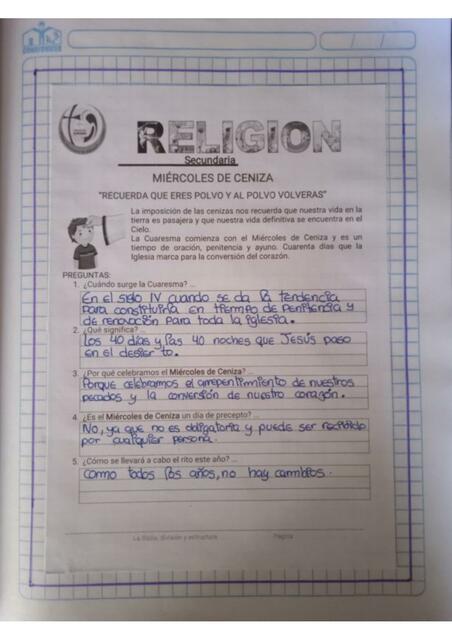 RELIGION
Secundaria
MIÉRCOLES DE CENIZA
"RECUERDA QUE ERES POLVO Y AL POLVO VOLVERAS"
La imposición de las cenizas nos recuerda que nuestra vida en la
tierra es pasajera y que nuestra vida definitiva se encuentra en el
Cielo.
La Cuaresma comienza con el Miércoles de Ceniza y es un
tiempo de oración, penitencia y ayuno. Cuarenta días que la
Iglesia marca para la conversión del corazón.
PREGUNTAS:
1. ¿Cuándo surge la Cuaresma? ...
En el siglo IV cuando se da la tendencia
para constituirla en tiempo de penitencia y
de renovación para toda la iglesia.
2. ¿Qué significa? ...
Los 40 días y las 40 noches que Jesús paso
en el desierto.
3. ¿Por qué celebramos el Miércoles de Ceniza? ...
Porque celebramos el arrepentimiento de nuestros
pecados y la conversión de nuestro corazón.
4. ¿Es el Miércoles de Ceniza un día de precepto? ...
No, ya que no es obligatoria y puede ser recibido
por cualquier persona.
5. ¿Cómo se llevará a cabo el rito este año? ...
Como todos los años, no hay cambios.
La Biblia, división y estructura
Página